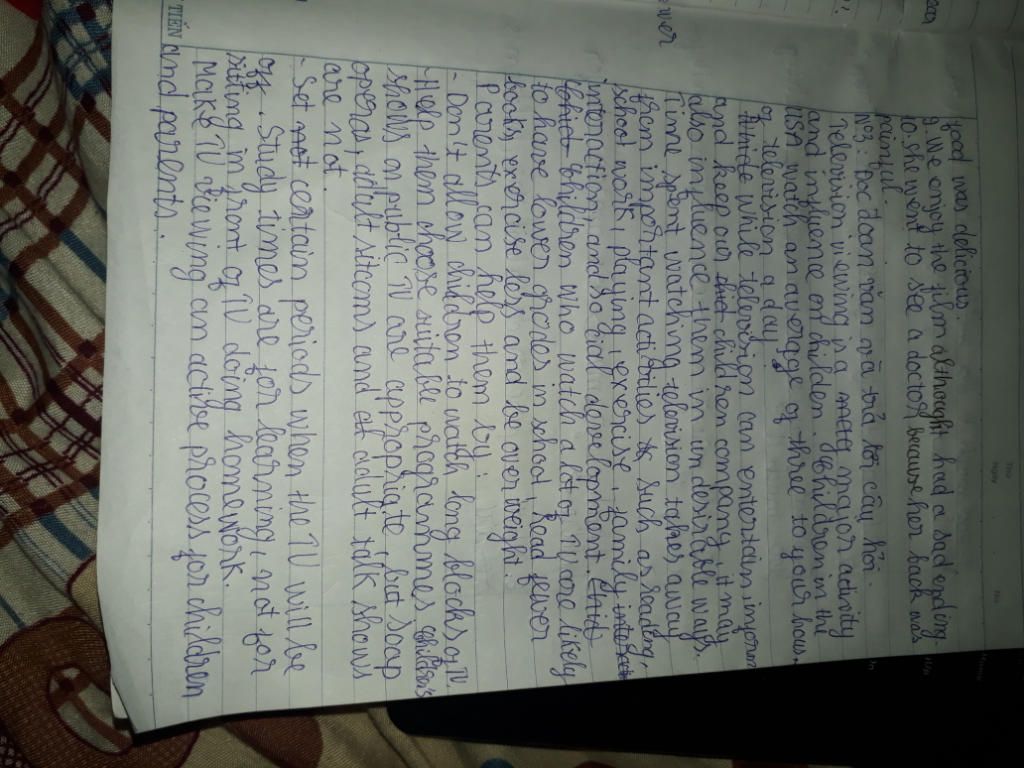 food was delicious.
g. We enjoy the film althought had a sad ending.
10. she went to see a doctor, because her back was
painful.
N3: Đọc đoạn văn và trả lời câu hỏi.
Television viewing is a major activity
and influence on children, children in the
usn watch an average of three to your hours
of television a day.
while television can entertain, inform
and keep our children company, it may
also influence them in un desirable ways.
Time spent watching television takes away
from important activities such as reading,
school work, playing, exercise, family
interaction, and social development.
children who watch a lot of TV are likely
to have lower grades in school, read fewer
books, exercise less, and be over weight
Parents can help them by:
- Don't allow children to watch long blocks of TV.
- Help them choose suitable programmes children's
shows on public TV are appropriate, but soap
operas, adult sitcoms and adult talk shows
are not.
- Set certain periods when the TV will be
off. Study times are for learning, not for
sitting in front of TV doing homework.
Make TV viewing an active process for children
and parents.
TIẾN
ower